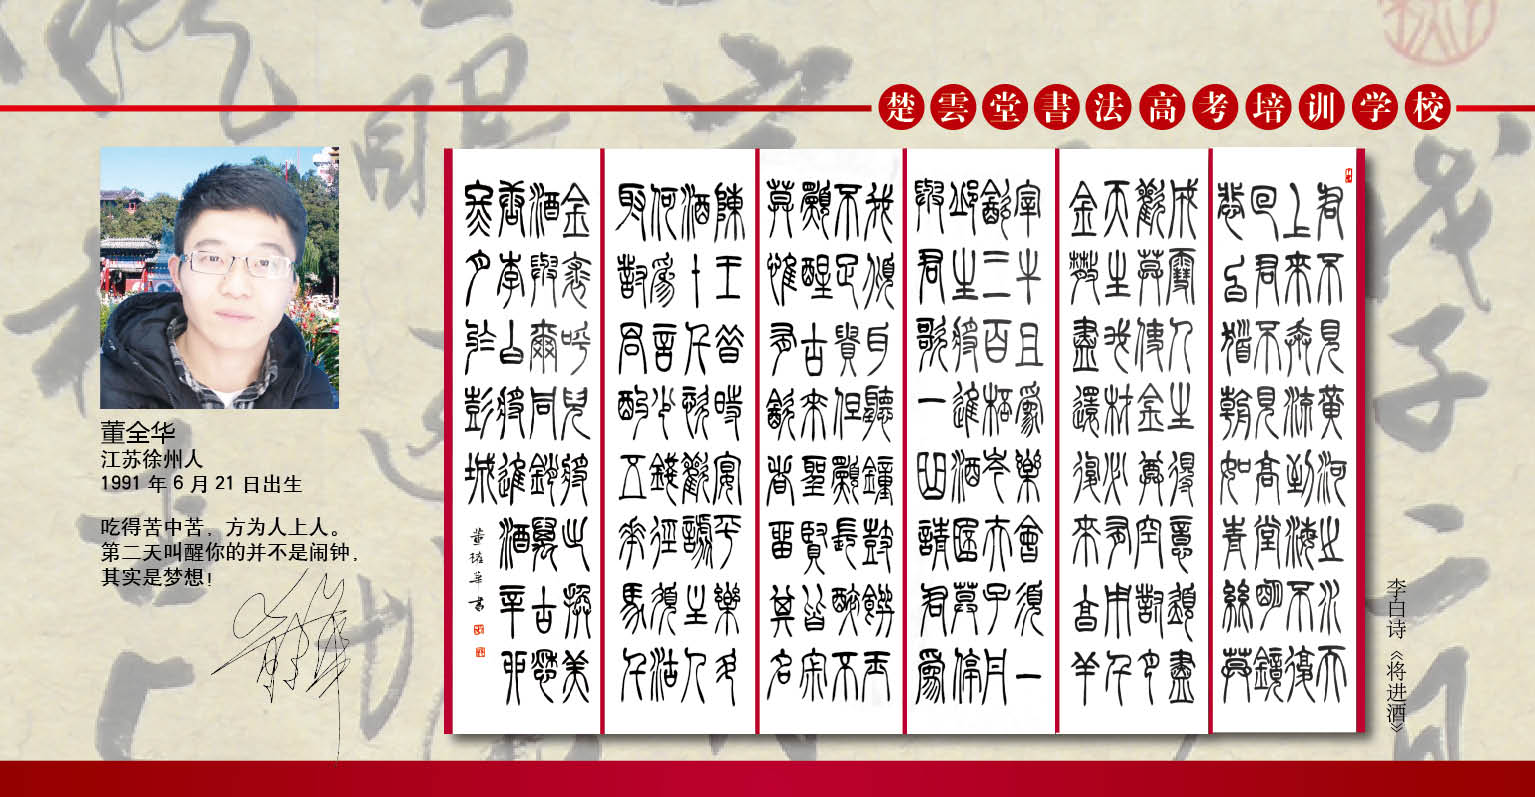 楚雲堂書法高考培训学校
董全华
江苏徐州人
1991 年 6 月 21 日出生
吃得苦中苦，方为人上人。
第二天叫醒你的并不是闹钟，
其实是梦想！
君不見黃河之水天
上來奔流到海不復
回君不見高堂明鏡
悲白髮朝如青絲莫
成雪人生得意須盡
歡莫使金尊空對月
天生我材必有用千
金散盡還復來烹羊
宰牛且為樂會須一
飲三百杯岑夫子丹
邱生將進酒杯莫停
與君歌一曲請君為
我傾耳聽鐘鼓饌玉
不足貴但願長醉不
願醒古來聖賢皆寂
莫惟有飲者留其名
陳王昔時宴平樂斗
酒十千恣歡謔主人
何為言少錢徑須沽
取對君酌五花馬千
金裘呼兒將出換美
酒與爾同銷萬古愁
唐李白將進酒辛卯
月於彭城
李白诗《将进酒》